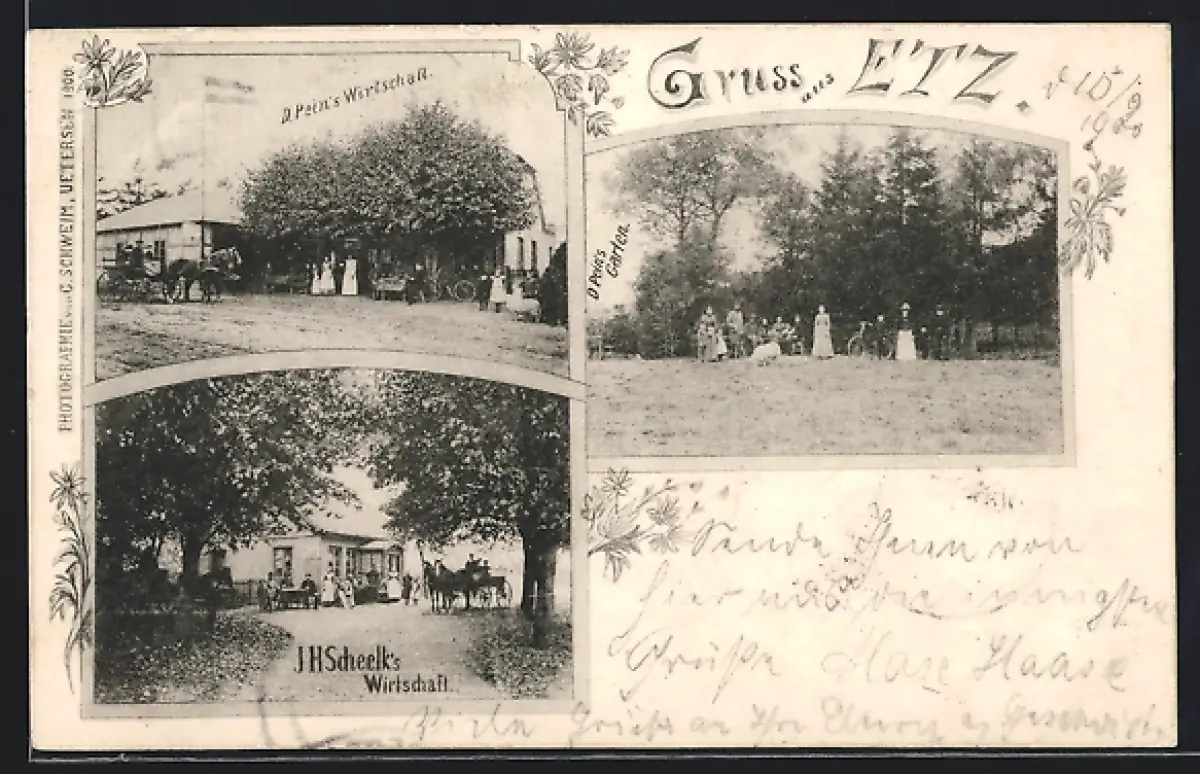 Gruss aus ETZ.
d 15/9
1900
D. Pein's Wirtschaft.
D. Pein's
Garten.
PHOTOGRAPHIE von C. SCHWEIM, UETERSEN 1900.
J.H Scheelk's
Wirtschaft.
Sende Ihnen von
hier aus die innigsten
Grüße Haase
Viele Grüße an Ihre Eltern